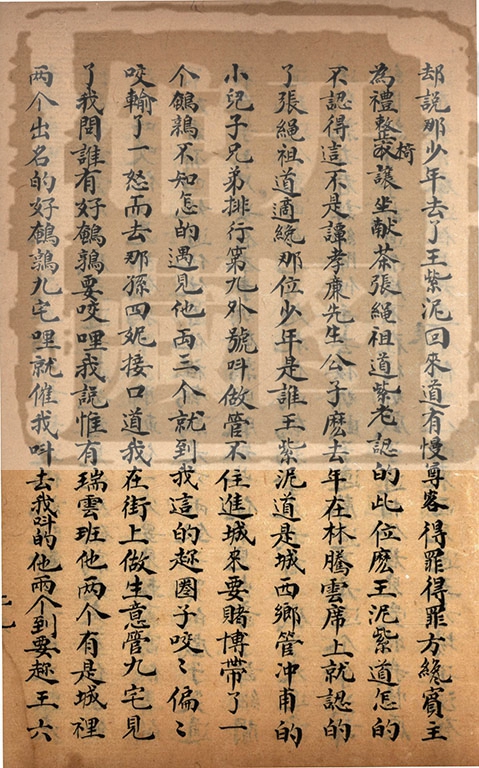 却説那少年去了王紫泥回來道有慢尊客得罪得罪方纔賓主
為禮整椅讓坐献茶張繩祖道紫老認的此位麽王泥紫道怎的
不認得這不是譚孝廉先生公子麽去年在林騰雲席上就認的
了張繩祖道適纔那位少年是誰王紫泥道是城西鄉管冲甫的
小兒子兄弟排行第九外號呌做管不住進城來要賭博帶了一
个鵪鶉不知怎的遇見他两三个就到我這的趂圈子咬〻偏〻
咬輸了一怒而去那孫四妮接口道我在街上做生意管九宅見
了我問誰有好鵪鶉要咬哩我説惟有瑞雲班他两个有是城裡
两个出名的好鵪鶉九宅哩就催我呌去我呌的他两个到要趂王六